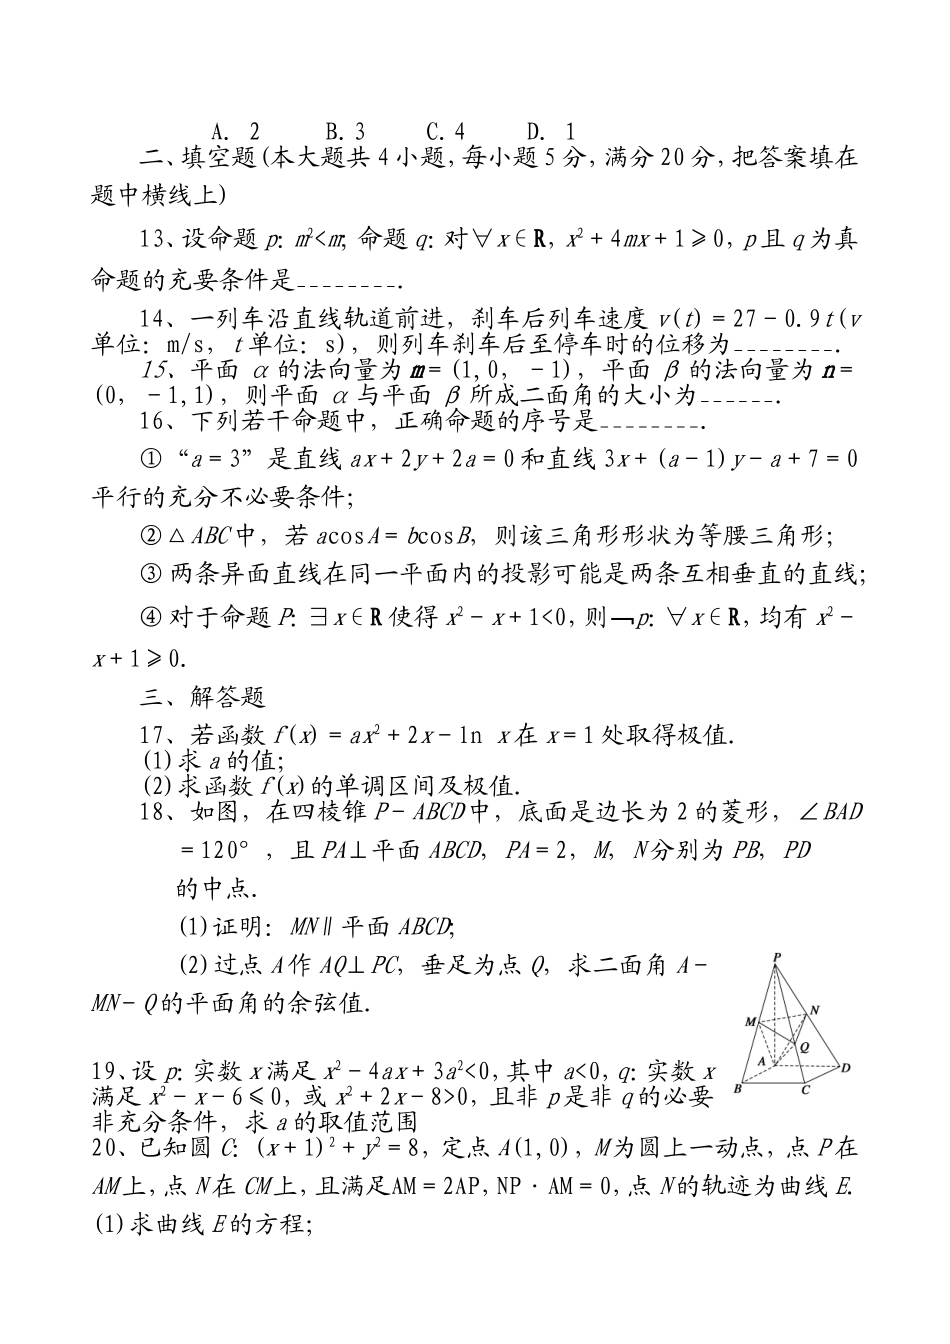 A. 2 B. 3 C. 4 D. 1
二、填空题(本大题共 4 小题,每小题 5 分,满分 20 分,把答案填在
题中横线上)
13、设命题 p: m²<m; 命题 q: 对∀x∈R, x²+4mx+1≥0, p 且 q 为真
命题的充要条件是________.
14、一列车沿直线轨道前进, 刹车后列车速度 v(t)=27-0.9t(v
单位: m/s, t 单位: s), 则列车刹车后至停车时的位移为________.
15、平面 α 的法向量为 m=(1,0, -1), 平面 β 的法向量为 n=
(0, -1,1), 则平面 α 与平面 β 所成二面角的大小为______.
16、下列若干命题中, 正确命题的序号是________.
①“a=3”是直线 ax+2y+2a=0 和直线 3x+(a-1)y-a+7=0
平行的充分不必要条件;
②△ABC 中, 若 acosA=bcosB, 则该三角形形状为等腰三角形;
③两条异面直线在同一平面内的投影可能是两条互相垂直的直线;
④对于命题 P: ∃x∈R 使得 x²-x+1<0, 则¬p: ∀x∈R, 均有 x²-
x+1≥0.
三、解答题
17、若函数 f(x)=ax²+2x-ln x 在 x=1 处取得极值.
(1)求 a 的值;
(2)求函数 f(x)的单调区间及极值.
18、如图, 在四棱锥 P-ABCD 中, 底面是边长为 2 的菱形, ∠BAD
=120°, 且 PA⊥平面 ABCD, PA=2, M, N 分别为 PB, PD
的中点.
(1)证明: MN∥平面 ABCD;
(2)过点 A 作 AQ⊥PC, 垂足为点 Q, 求二面角 A-
MN-Q 的平面角的余弦值.
P
M
N
A
Q
B
C
D
19、设 p: 实数 x 满足 x²-4ax+3a²<0, 其中 a<0, q: 实数 x
满足 x²-x-6≤0, 或 x²+2x-8>0, 且非 p 是非 q 的必要
非充分条件, 求 a 的取值范围
20、已知圆 C: (x+1)²+y²=8, 定点 A(1,0), M 为圆上一动点, 点 P 在
AM 上, 点 N 在 CM 上, 且满足AM=2AP, NP·AM=0, 点 N 的轨迹为曲线 E.
(1)求曲线 E 的方程;